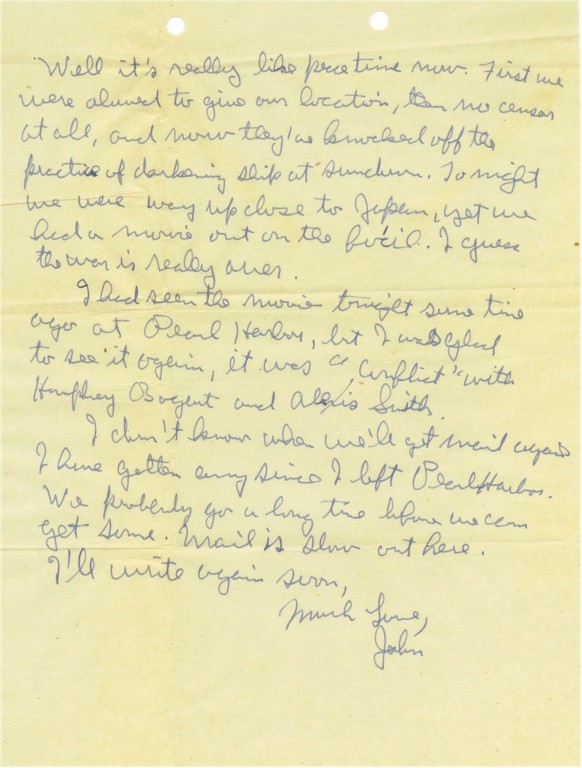 Well it's really like peace time now. First we
were alowed to give our location, then no censor
at all, and now they've knocked off the
practice of darkening ship at sundown. Tonight
we were way up close to Japan, yet we
had a movie out on the fo'c'il. I guess
the war is really over.
I had seen the movie tonight some time
ago at Pearl Harbor, but I was glad
to see it again, it was "Conflict" with
Humphrey Bogart and Alexis Smith.
I don't know when we'll get mail again
I have gotten any since I left Pearl Harbor.
We probably go a long time before we can
get some. Mail is slow out here.
I'll write again soon,
Much Love,
John